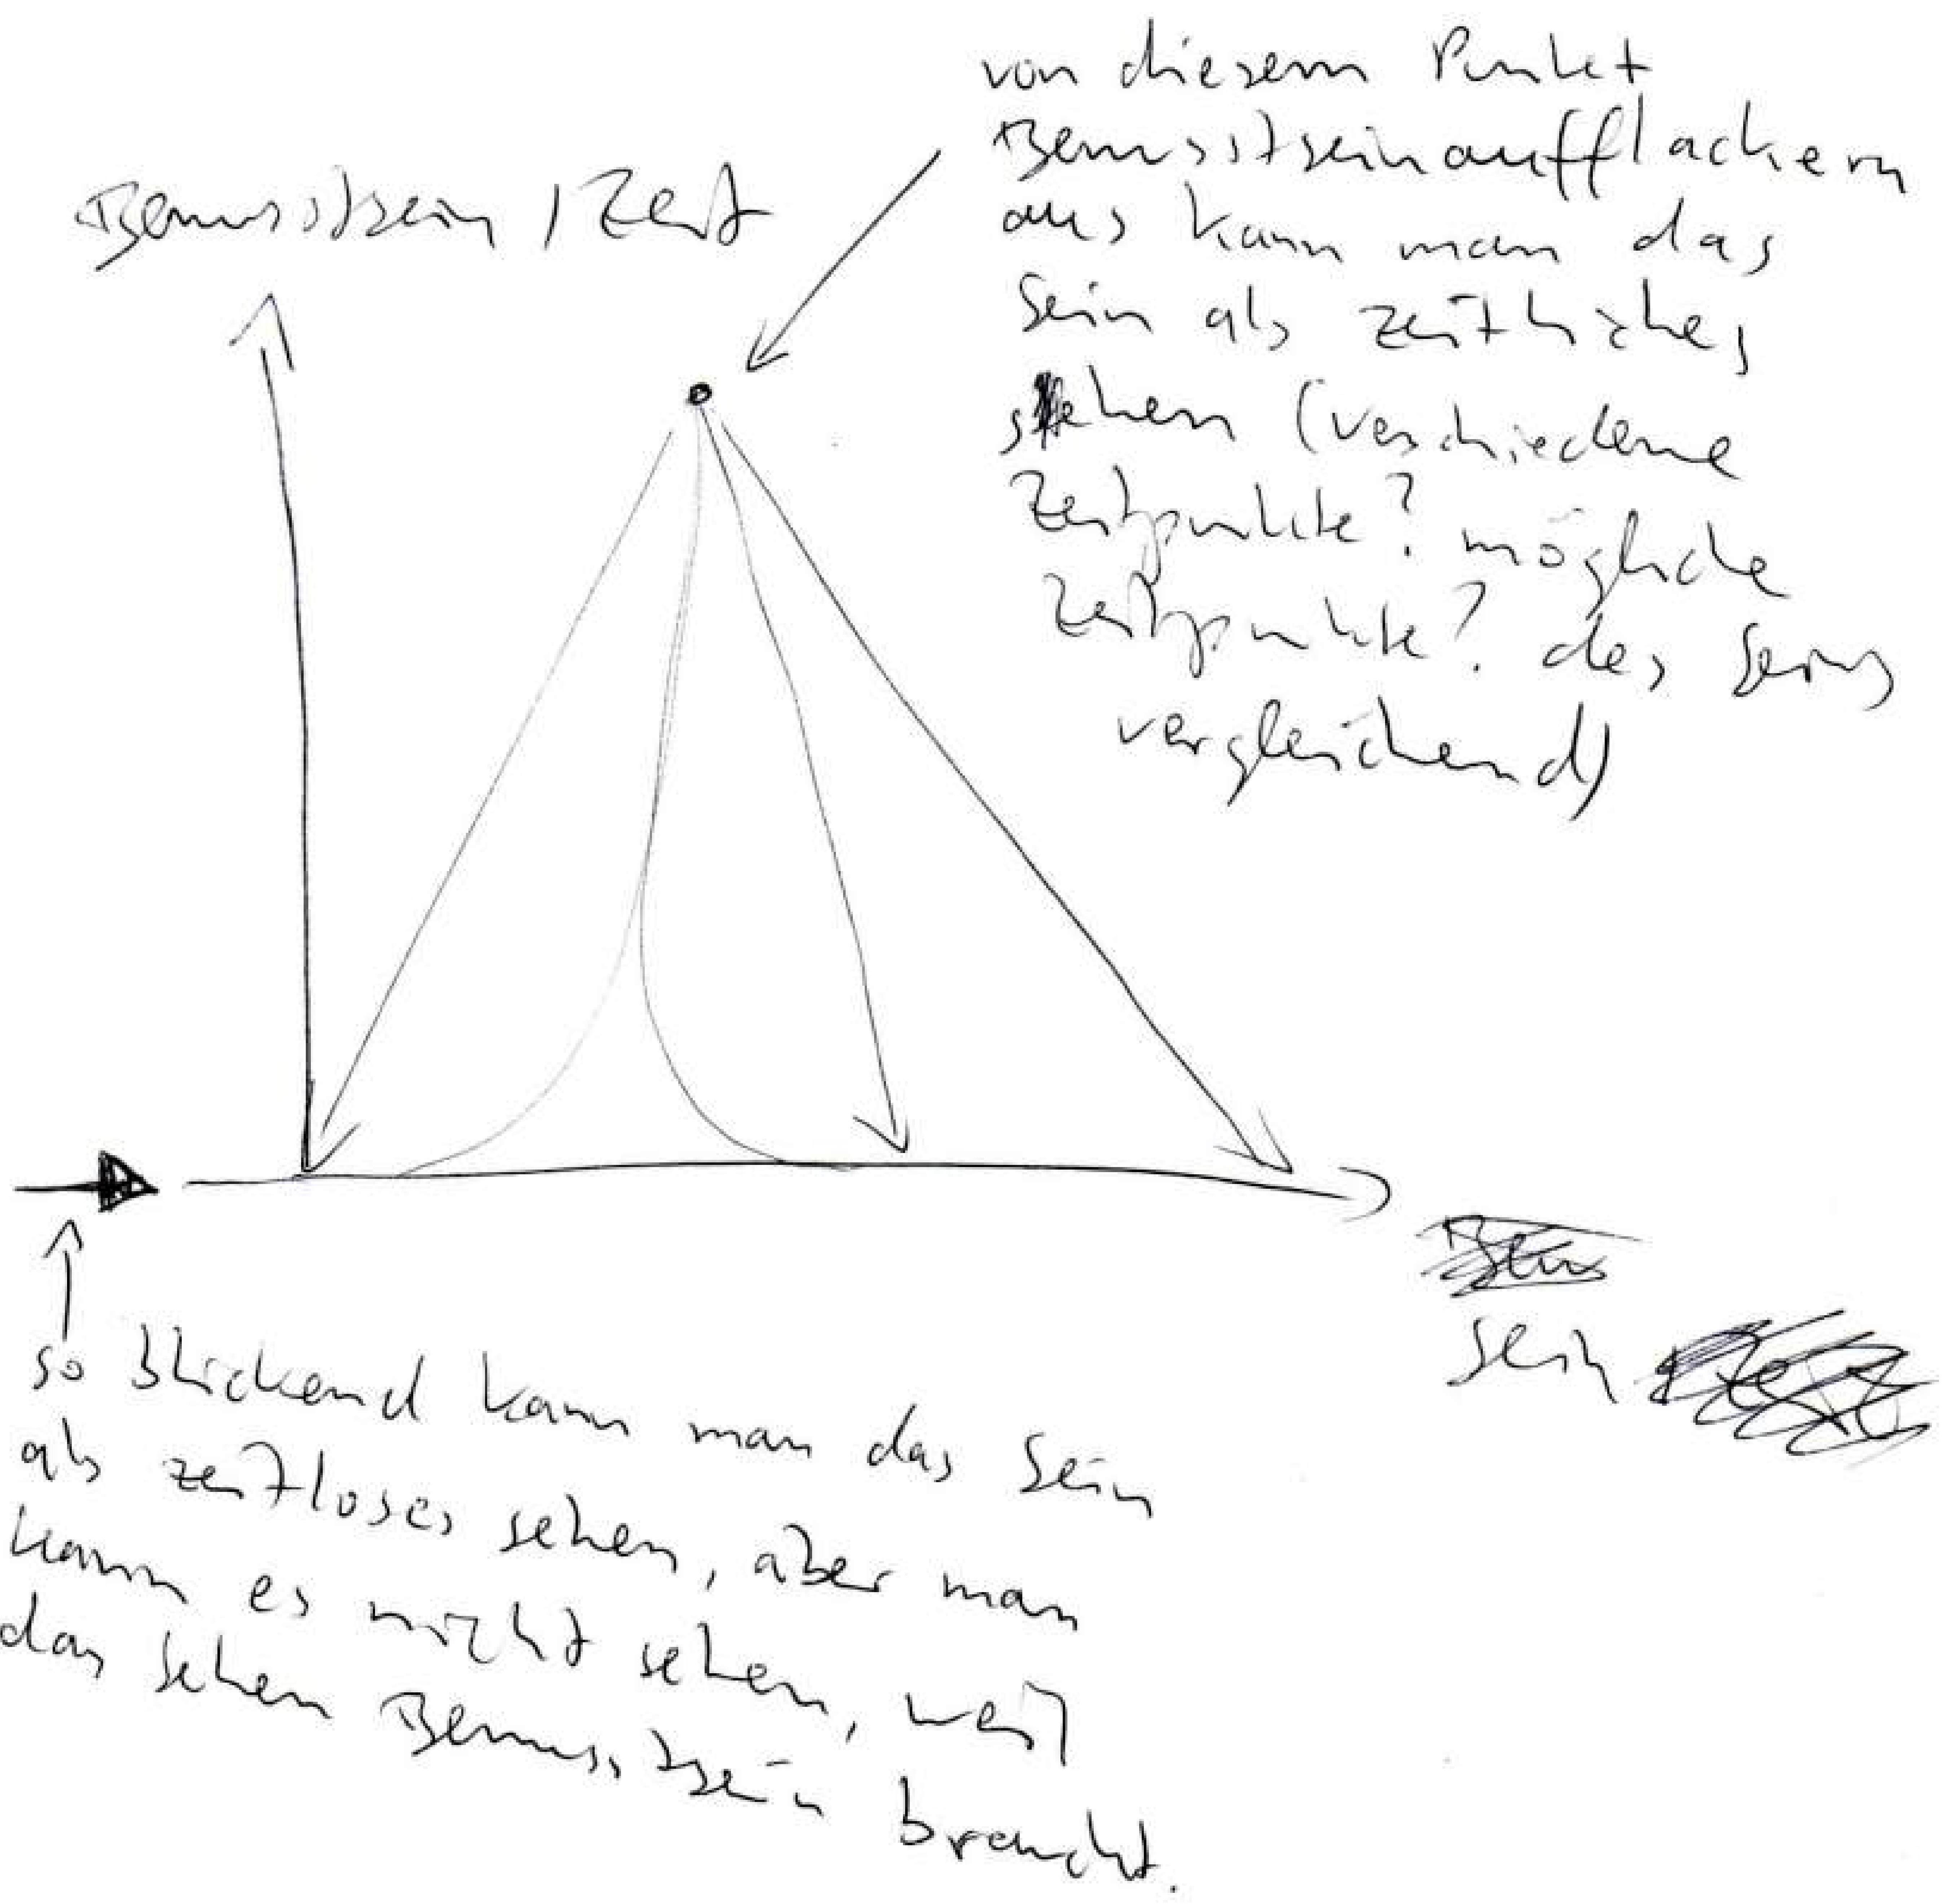 von diesem Punkt
Bewusstseinaufflackern
aus kann man das
Sein als zeitliches
sehen (verschiedene
Zeitpunkte? mögliche
Zeitpunkte? des Seins
vergleichend)
Bewusstsein / Zeit
Sein
so blickend kann man das Sein
als zeitloses sehen, aber man
kann es nicht sehen, weil
das sehen Bewusstsein
braucht.